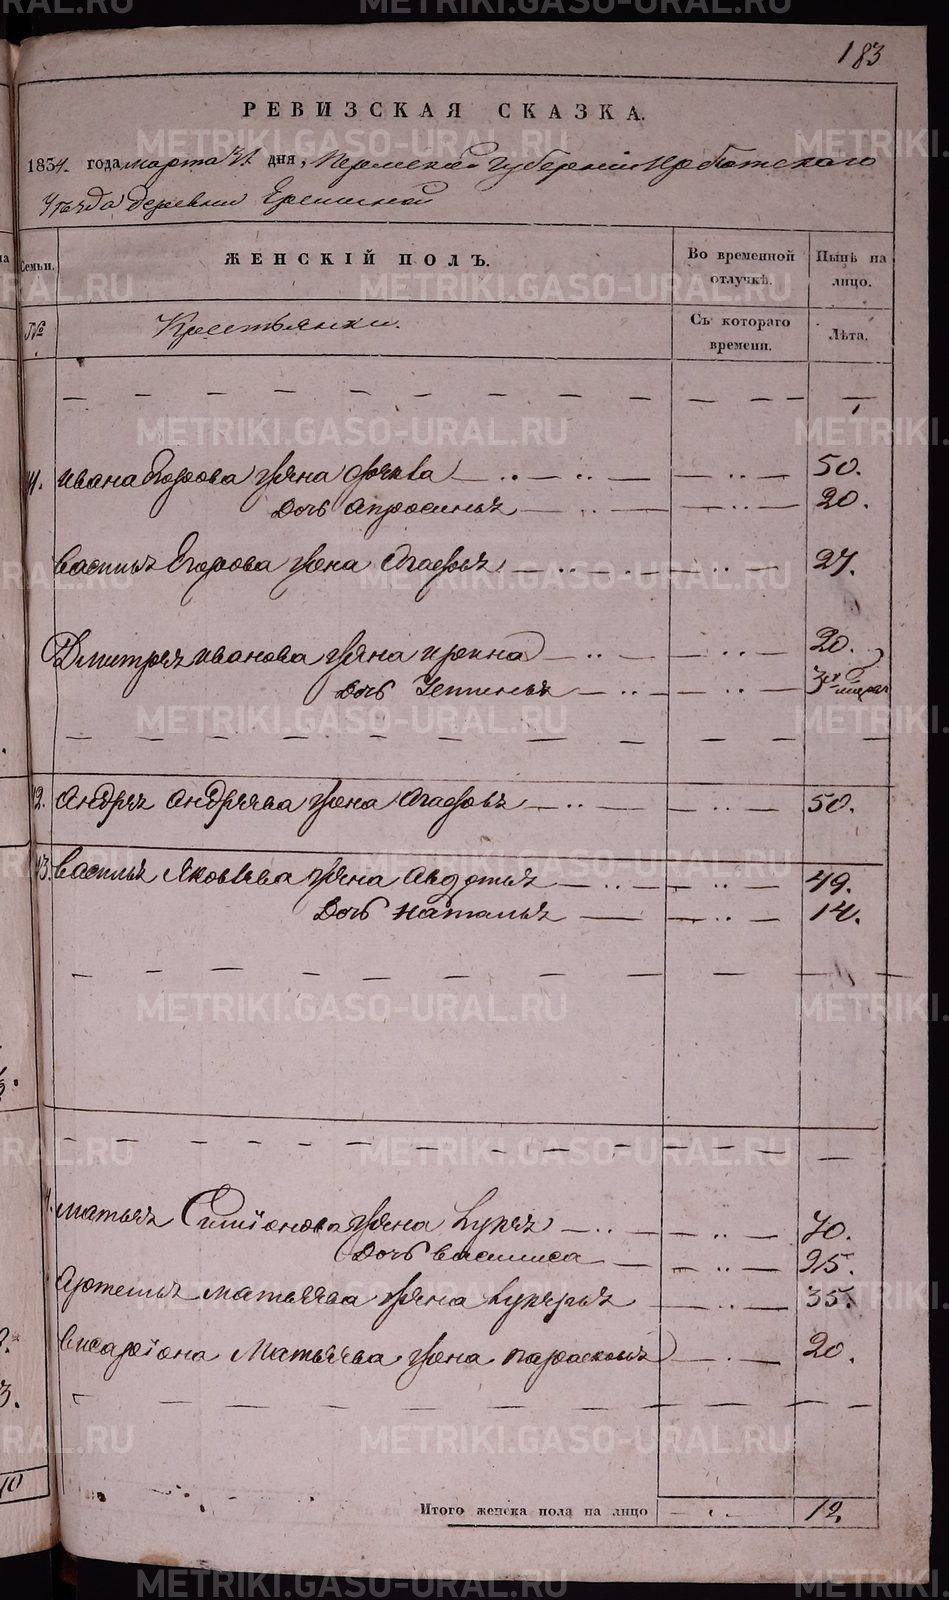 183
РЕВИЗСКАЯ СКАЗКА.
1834. года марта 31. дня, Пермской Губернии Ирбитского
Уезда деревни
Семьи. ЖЕНСКІЙ ПОЛЪ. Во временной отлучкѣ. Нынѣ на лицо.
№ Крестьянки. Съ котораго времени. Лѣта.
Ивана Егорова жена 50.
Дочь Апросинья 20.
Василья Егорова жена Агафья 27.
Дмитрия Иванова жена Ирина 20.
Дочь
12. Андрея Андреева жена Агафья 50.
13. Василья Яковлева жена Авдотья 49.
Дочь Наталья 14.
Матвея Симионова жена Лукия 70.
Дочь Василиса 25.
Артемья Матвеева жена Лукерья 35.
Висариона Матвеева жена Парасковья 20.
Итого женска пола на лицо 12.
METRIKI.GASO-URAL.RU